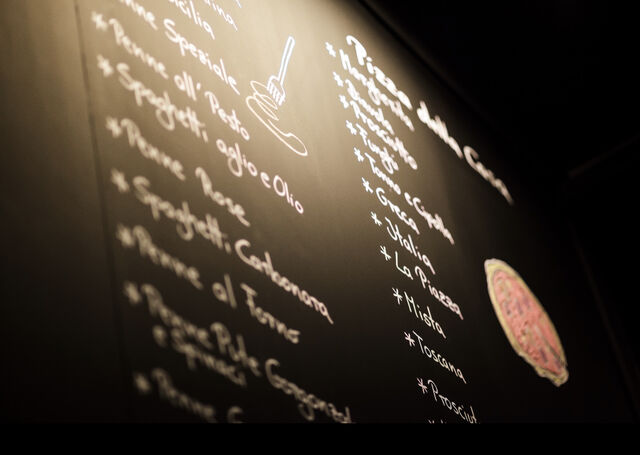 Sicilia
Penne Speziale
* Penne all' Pesto
* Spaghetti aglio e Olio
* Penne Rose
* Spaghetti Carbonara
* Penne al Forno
* Penne Pute Gorgonzol
e Spinaci
* Penne
Pizza dalla Casa
* Margherita
* Prosciutto
* Funghi
* Tonno e Cipolla
* Greca
* Italia
* La Piazza
* Mista
* Toscana
* Prosciut